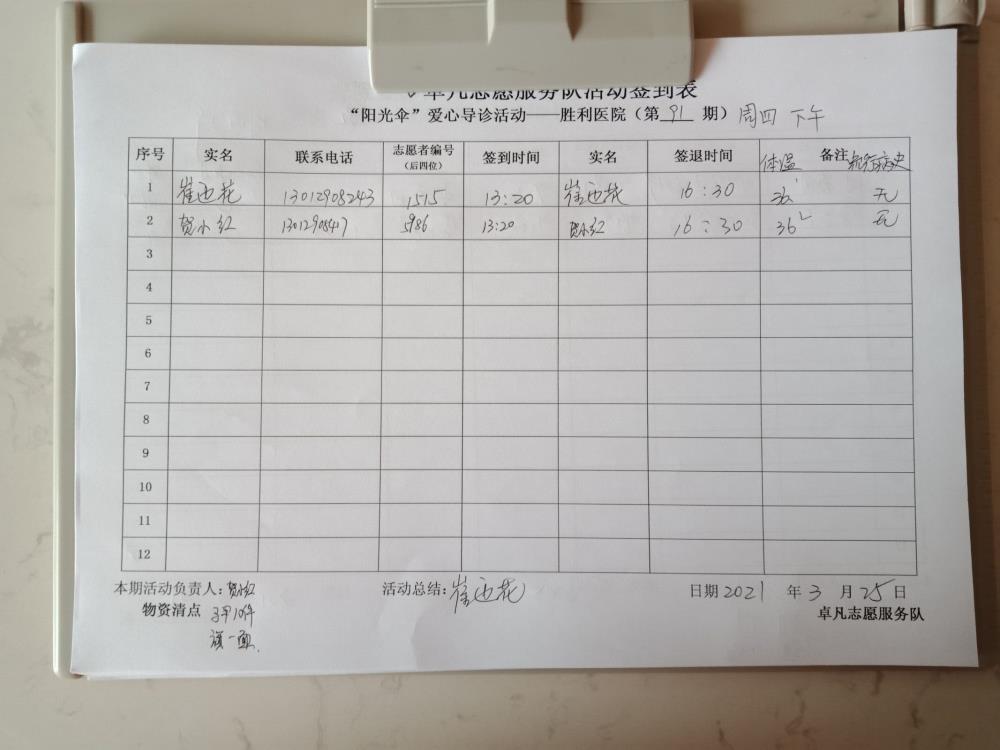 卓凡志愿服务队活动签到表
“阳光伞”爱心导诊活动——胜利医院（第 91 期）周四 下午
序号 实名 联系电话 志愿者编号（后四位） 签到时间 实名 签退时间 体温 备注 流行病史
1 崔迎花 13012908243 1515 13:20 崔迎花 16:30 36 无
2 贺小红 1301290847 5986 13:20 贺小红 16:30 36² 无
3
4
5
6
7
8
9
10
11
12
本期活动负责人：贺小红 活动总结：崔迎花 日期 2021 年 3 月 25 日
物资清点 马甲10件 卓凡志愿服务队
旗一面